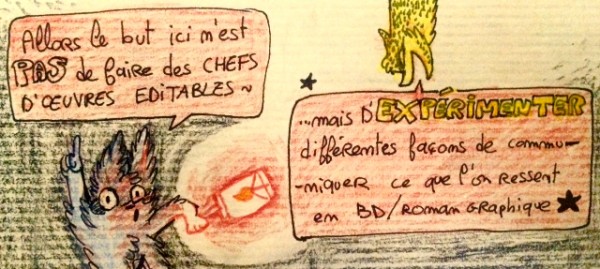 Allors le but ici n'est
PAS de faire des CHEFS
D'OEUVRES EDITABLES ~
...mais D'EXPÉRIMENTER
différentes façons de commu-
-niquer ce que l'on ressent
en BD/ROMAN GRAPHIQUE